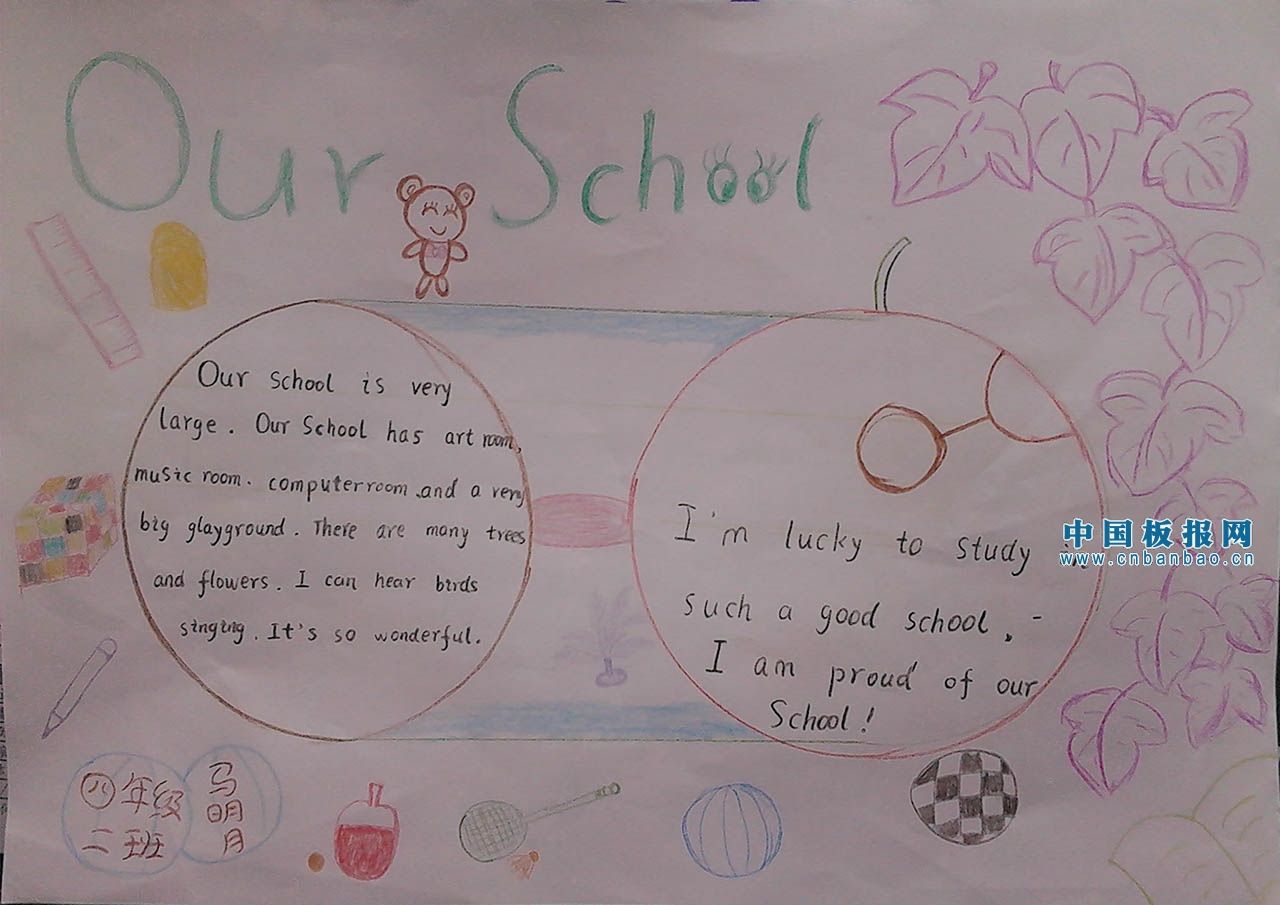 Our School
Our school is very
large. Our School has art room,
music room. computer room .and a very
big glayground. There are many trees
and flowers. I can hear birds
singing. It's so wonderful.
I'm lucky to study
such a good school,
I am proud of our
School!
中国板报网
www.cnbanbao.cn
四年级
二班
马明月